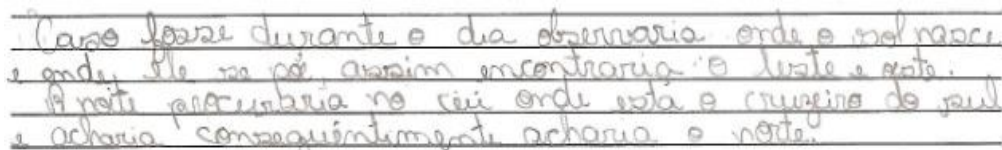 Caso fosse durante o dia observaria onde o sol nasce
e onde, ele se põe assim encontraria o leste e oeste.
A noite procuraria no céu onde está o cruzeiro do sul
e acharia consequêntimente acharia o norte.